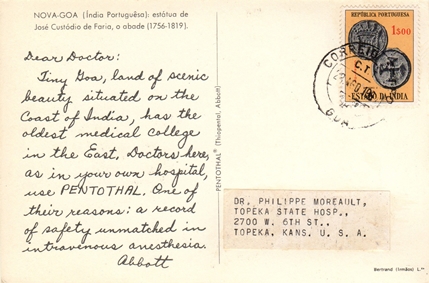 NOVA-GOA (Índia Portuguêsa): estátua de
José Custódio de Faria, o abade (1756-1819).
Dear Doctor:
Tiny Goa, land of scenic
beauty situated on the
Coast of India, has the
oldest medical college
in the East. Doctors here,
as in your own hospital,
use PENTOTHAL. One of
their reasons: a record
of safety unmatched in
intravenous anesthesia.
Abbott
PENTOTHAL® (Thiopental, Abbott)
REPÚBLICA PORTUGUESA
1$00
ESTADO DA INDIA
CORREIOS
C.T.
GOA
DR. PHILIPPE MOREAULT,
TOPEKA STATE HOSP.,
2700 W. 6TH ST.,
TOPEKA, KANS. U. S. A.
Bertrand (Irmãos) L.